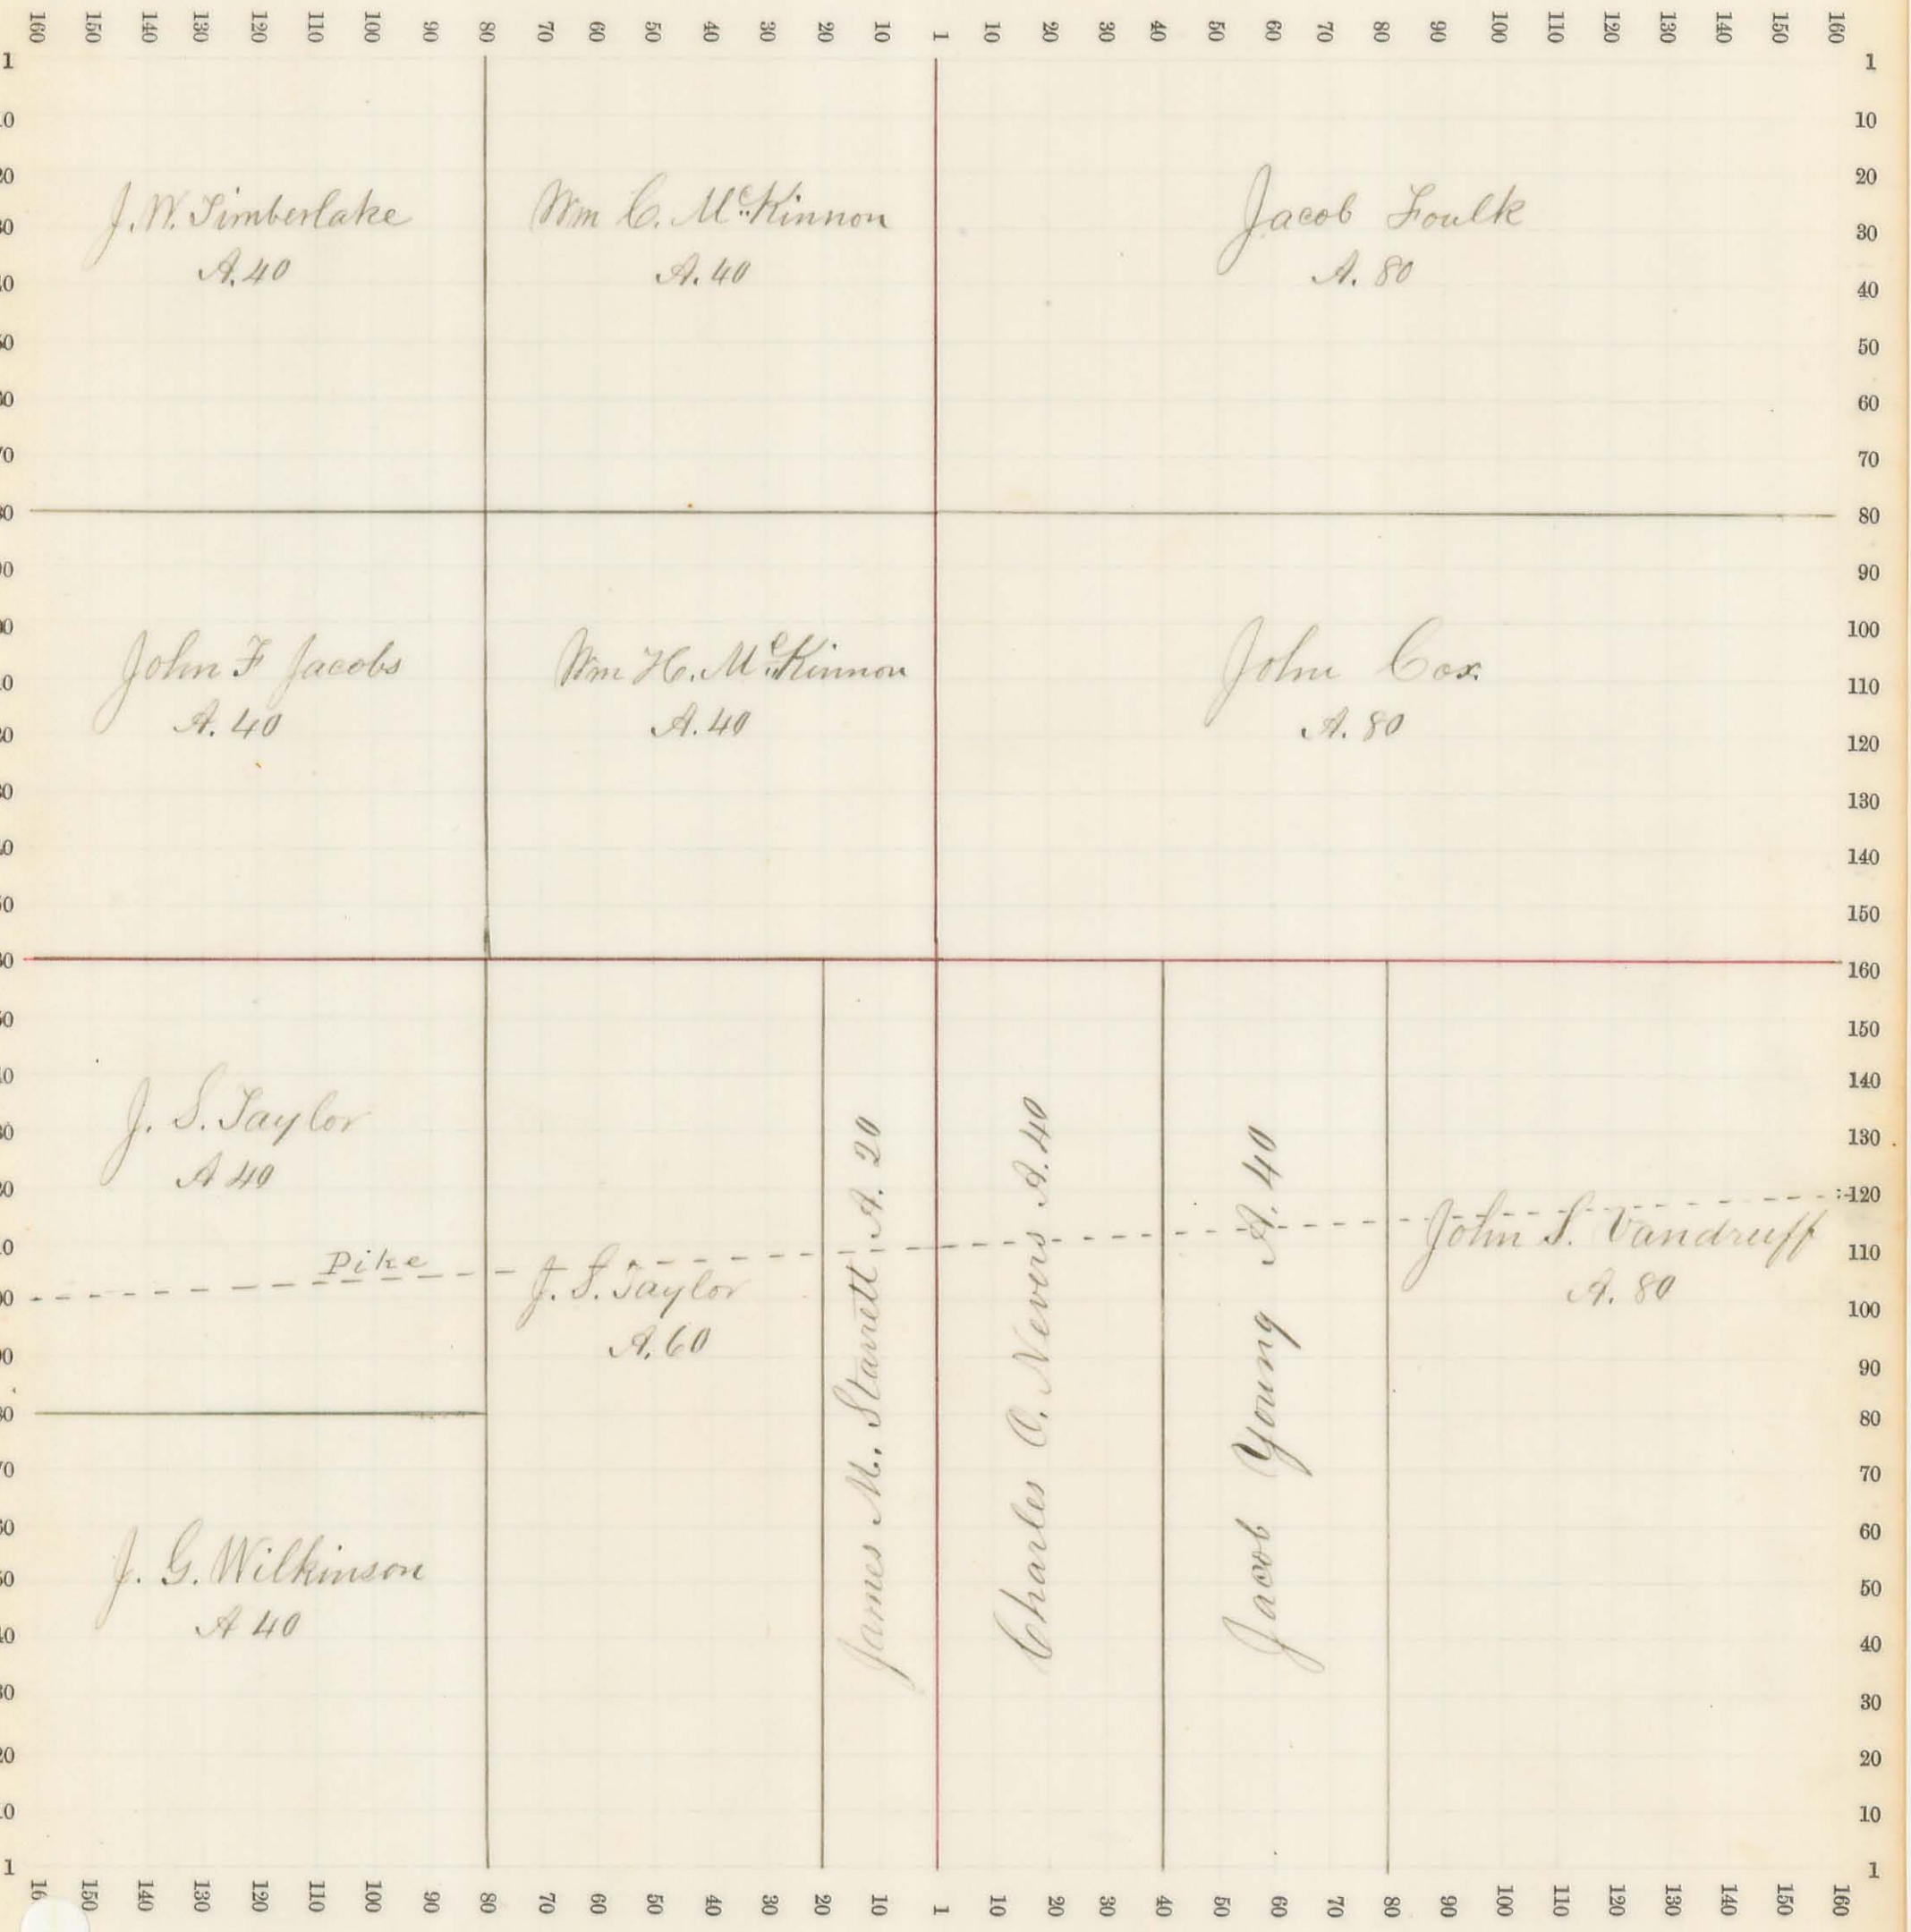 160 150 140 130 120 110 100 90 80 70 60 50 40 30 20 10 1 10 20 30 40 50 60 70 80 90 100 110 120 130 140 150 160
1
10
20
30
40
50
60
70
80
90
100
110
120
130
140
150
160
150
140
130
120
110
100
90
80
70
60
50
40
30
20
10
1
J. W. Timberlake
A. 40
Wm C. McKinnon
A. 40
Jacob Foulk
A. 80
John F Jacobs
A. 40
Wm H. McKinnon
A. 40
John Cox.
A. 80
J. S. Taylor
A 40
Pike
J. S. Taylor
A. 60
James M. Starrett A. 20
Charles O. Nevers A. 40
Jacob Young A. 40
John S. Vandruff
A. 80
J. G. Wilkinson
A 40
1
10
20
30
40
50
60
70
80
90
100
110
120
130
140
150
160
150
140
130
120
110
100
90
80
70
60
50
40
30
20
10
1
16 150 140 130 120 110 100 90 80 70 60 50 40 30 20 10 1 10 20 30 40 50 60 70 80 90 100 110 120 130 140 150 160